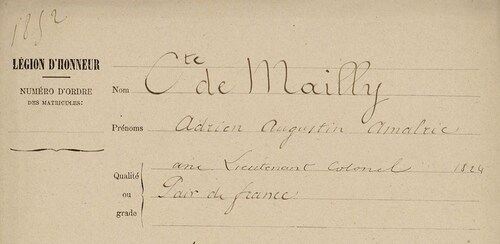 1852
LÉGION D'HONNEUR
NUMÉRO D'ORDRE
DES MATRICULES:
Nom Cte de Mailly
Prénoms Adrien Augustin Amalric
Qualité ou grade
anc Lieutenant Colonel 1824
Pair de france